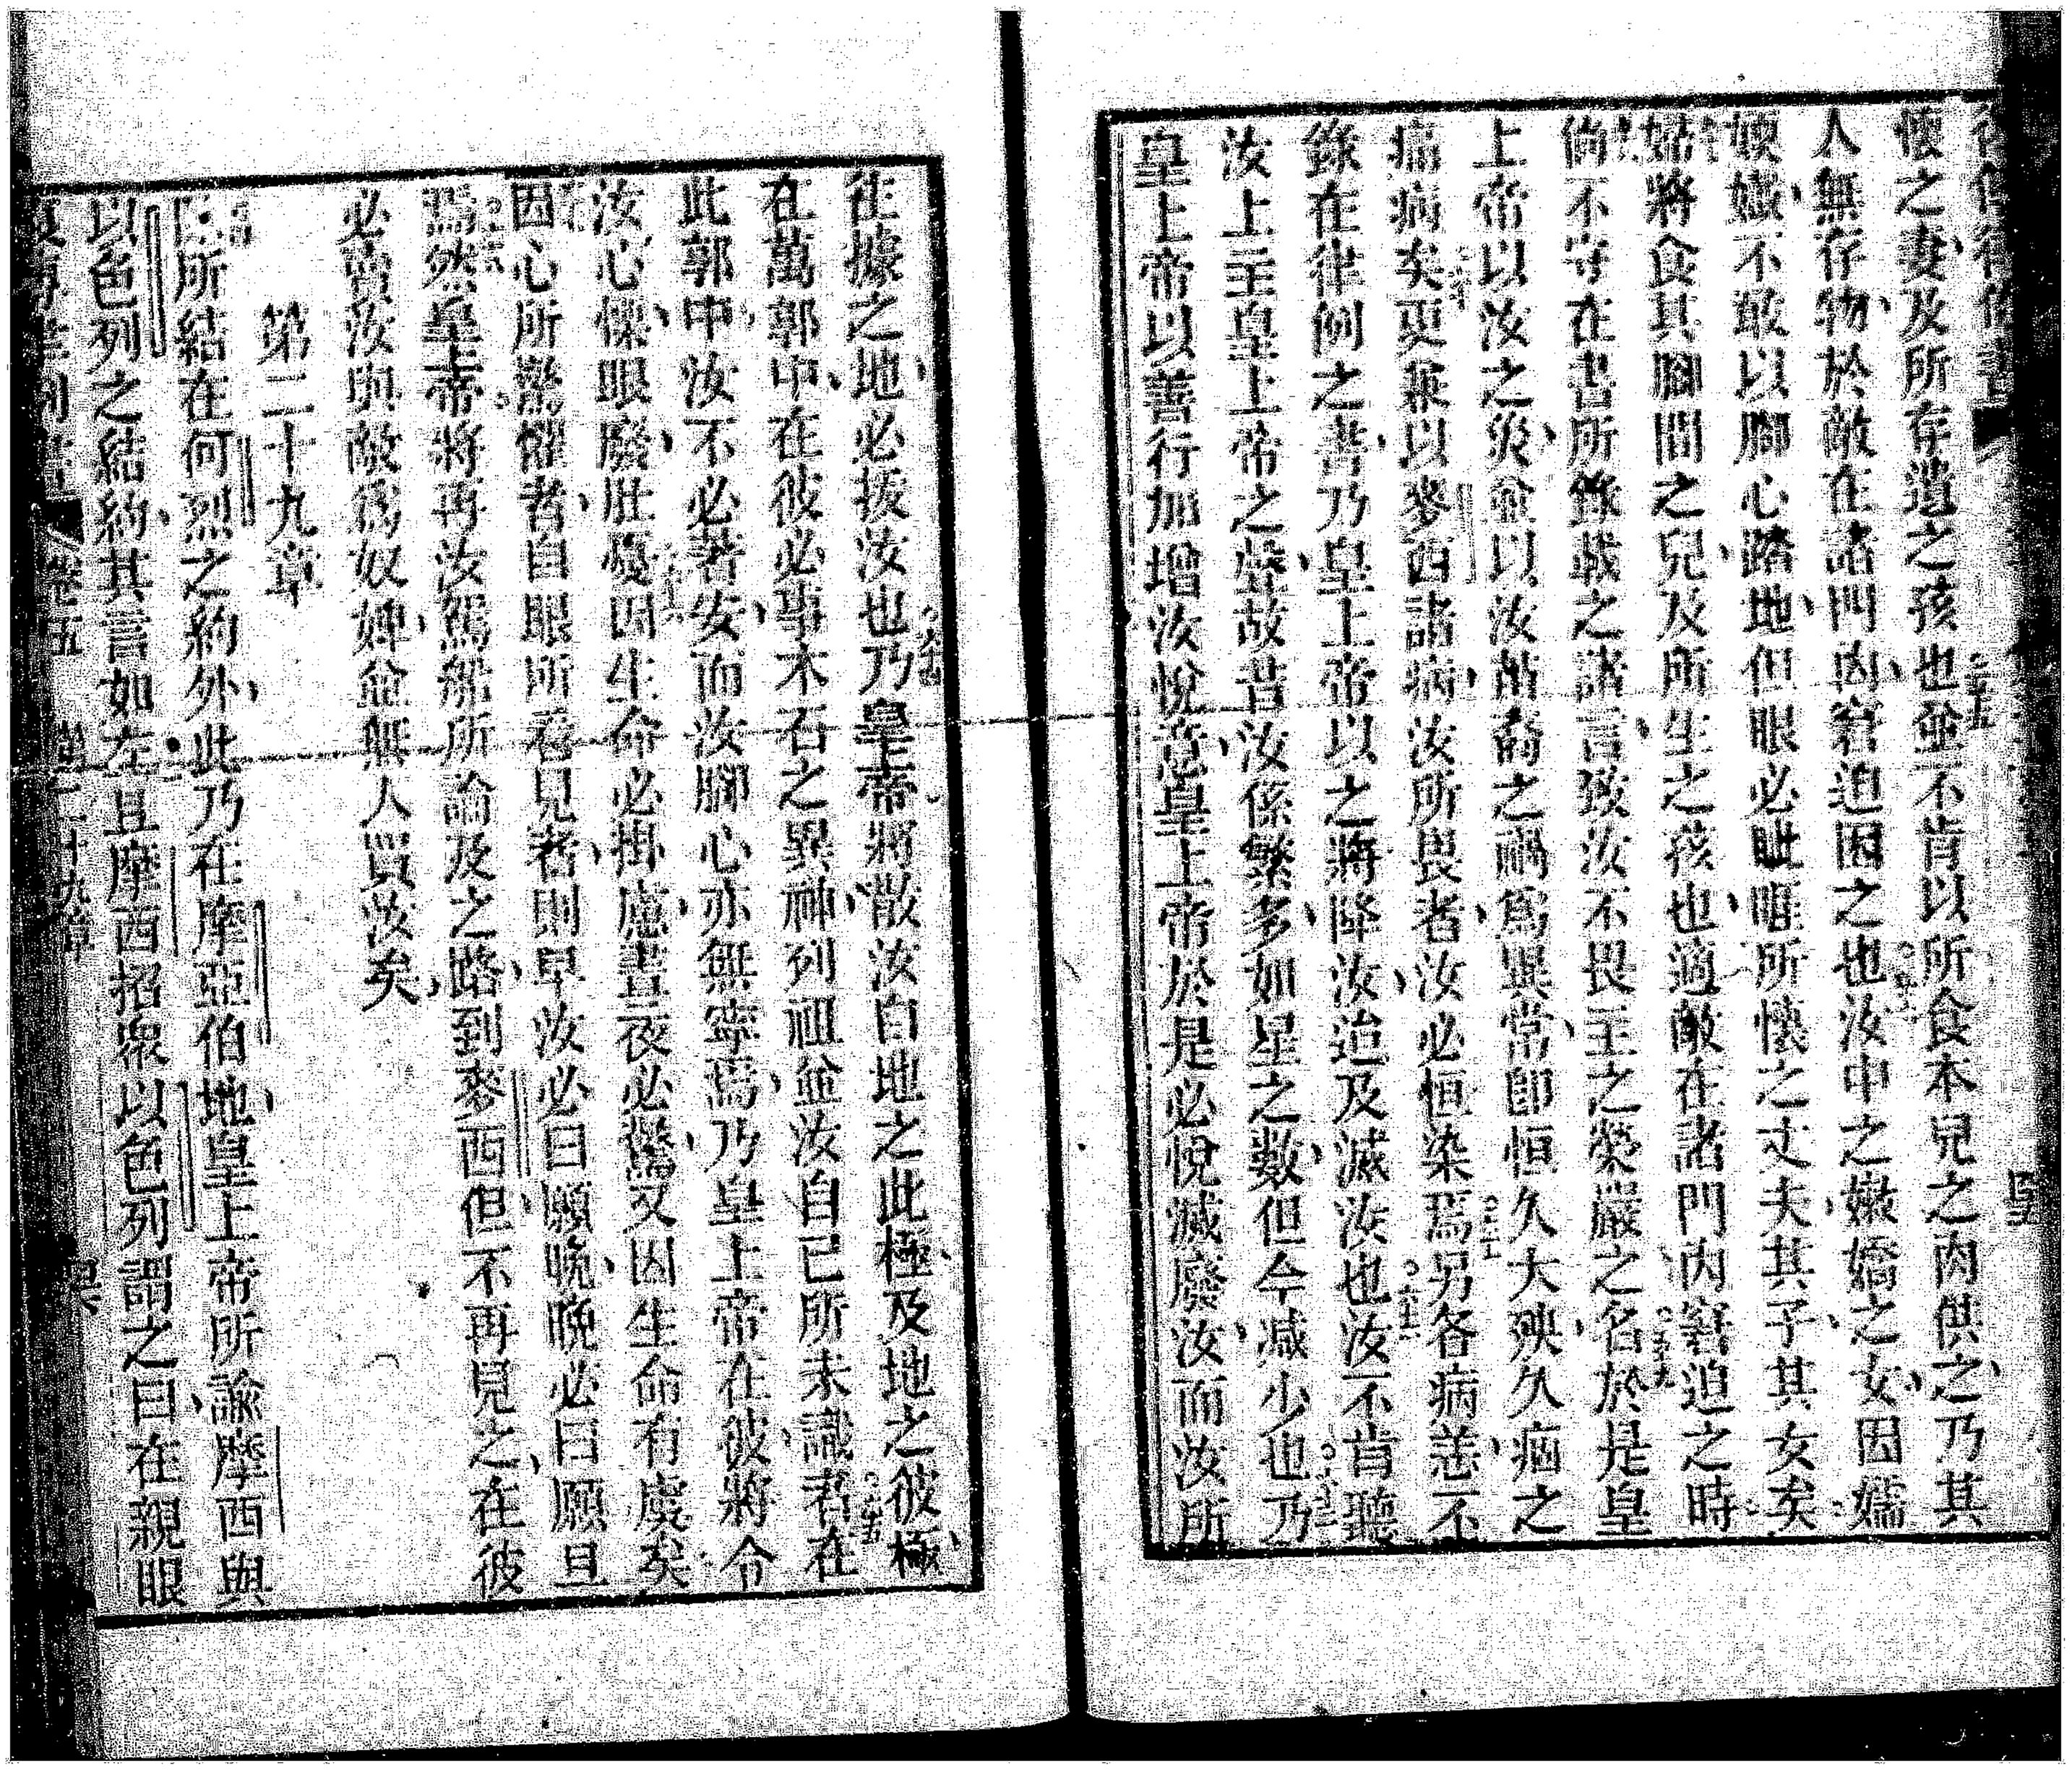 復傳律例書
懷之妻及所存遺之孩也並不肯以所食本兒之肉供之乃其
人無存物於敵在諸門內窘迫困之也汝中之嫩嬌之女因嬬
㜛孅不敢以腳心踏地但眼必眦睚所懷之丈夫其子其女矣
姑將食其腳間之兒及所生之孩也適敵在諸門內窘迫之時
倘不守在書所錄載之諸言致汝不畏主之榮嚴之名於是皇
上帝以汝之災並以汝苗裔之禍為異常即恒久大殃久痼之
痛病矣更兼以麥西諸病汝所畏者汝必恒染焉另各病恙不
錄在律例之書乃皇上帝以之將降汝迨及滅汝也汝不肯聽
汝上主皇上帝之聲故昔汝係繁多如星之數但今減少也乃
皇上帝以善行加增汝悅意皇上帝於是必悅滅廢汝而汝所
往據之地必拔汝也乃皇上帝將散汝自地之此極及地之彼極
在萬郭中在彼必事木石之異神列祖並汝自己所未識者在
此郭中汝不必著安而汝腳心亦無寧焉乃皇上帝在彼將令
汝心慄眼廢肚憂因生命必掛慮晝夜必驚又因生命有虞矣
因心所驚懼者自眼所看見者則早汝必曰願晚晚必曰願旦
焉然皇上帝將再汝駕船所論及之路到麥西但不再見之在彼
必賣汝與敵為奴婢並無人買汝矣
第二十九章
所結在何烈之約外此乃在摩亞伯地皇上帝所諭摩西與
以色列之結約其言如左且摩西招眾以色列謂之曰在親眼
復傳律例書 卷五 第二十九章